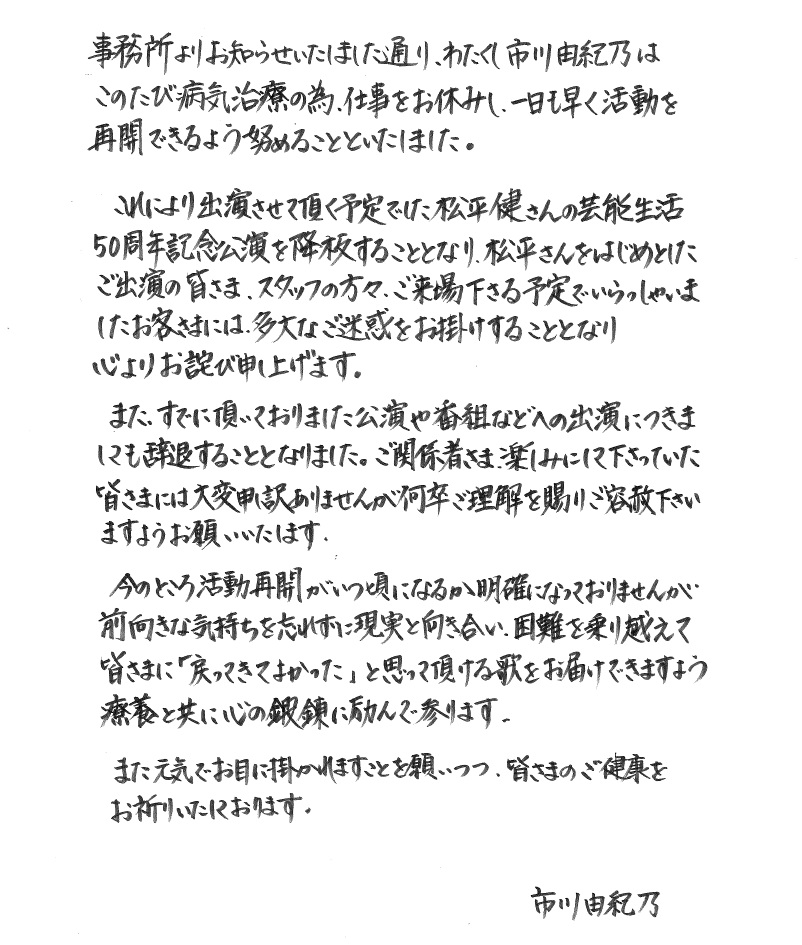 事務所よりお知らせいたしました通り、わたくし市川由紀乃は
このたび病気治療の為、仕事をお休みし、一日も早く活動を
再開できるよう努めることといたしました。
これにより出演させて頂く予定でした松平健さんの芸能生活
50周年記念公演を降板することとなり、松平さんをはじめとした
ご出演の皆さま、スタッフの方々、ご来場下さる予定でいらっしゃいま
したお客さまには、多大なご迷惑をお掛けすることとなり
心よりお詫び申し上げます。
また、すでに頂いておりました公演や番組などへの出演につきま
しても辞退することとなりました。ご関係者さま、楽しみにして下さっていた
皆さまには大変申訳ありませんが何卒ご理解を賜りご容赦下さい
ますようお願いいたします.
今のところ活動再開がいつ頃になるか明確になっておりませんが、
前向きな気持ちを忘れずに現実と向き合い、困難を乗り越えて
皆さまに「戻ってきてよかった」と思って頂ける歌をお届けできますよう
療養と共に心の鍛錬に励んで参ります.
また元気でお目に掛かれますことを願いつつ、皆さまのご健康を
お祈りいたしております.
市川由紀乃